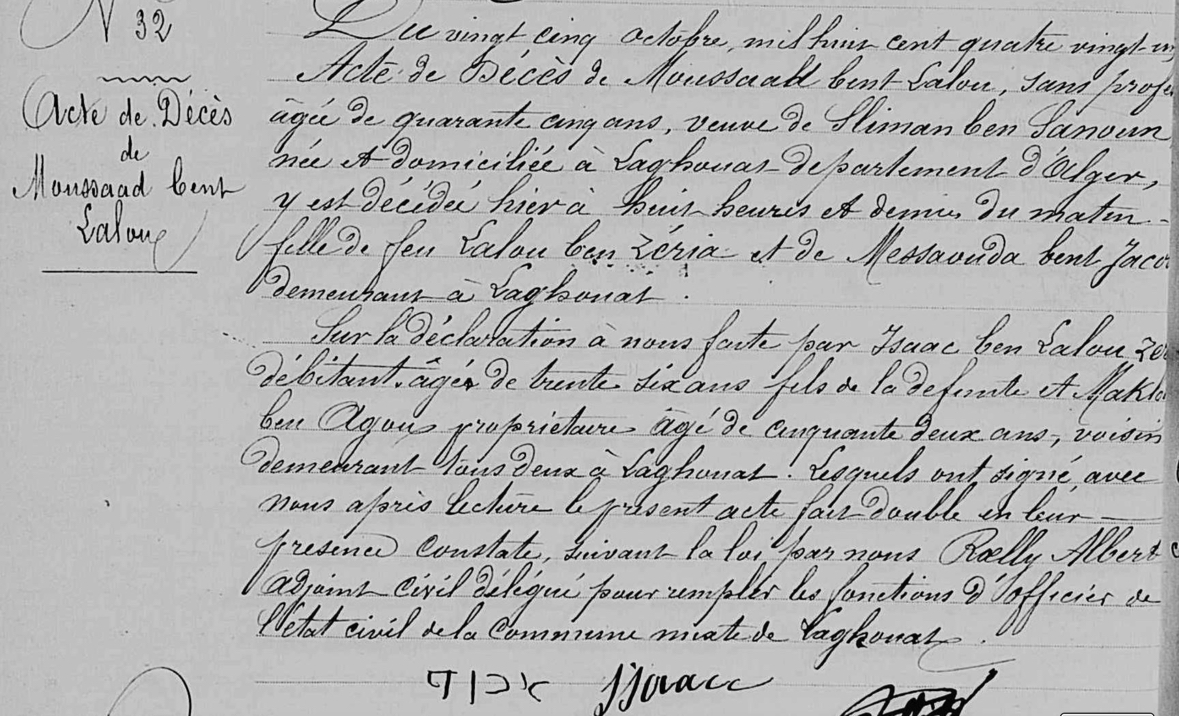 N 32
Acte de Décès
de
Moussaad bent
Lalou
Du vingt cinq octobre, mil huit cent quatre vingt-un
Acte de Décès de Moussaad bent Lalou, sans profe
âgée de quarante cinq ans, veuve de Sliman ben Sanoun
née et domiciliée à Laghouat departement d'Alger,
y est décédée hier à huit heures et demie du matin
fille de feu Lalou ben Zéria et de Messaouda bent Jaco
demeurant à Laghouat.
Sur la déclaration à nous faite par Isaac ben Lalou Zer
débitant âgé de trente six ans fils de la defunte et Makl
ben Agou propriétaire âgé de cinquante deux ans, voisin
demeurant tous deux à Laghouat. Lesquels ont signé avec
nous après lecture le présent acte fait double en leur
présence constaté, suivant la loi par nous Rœlly Albert
adjoint civil délégué pour remplir les fonctions d'officier de
l'état civil de la Commune mixte de Laghouat.
Isaac